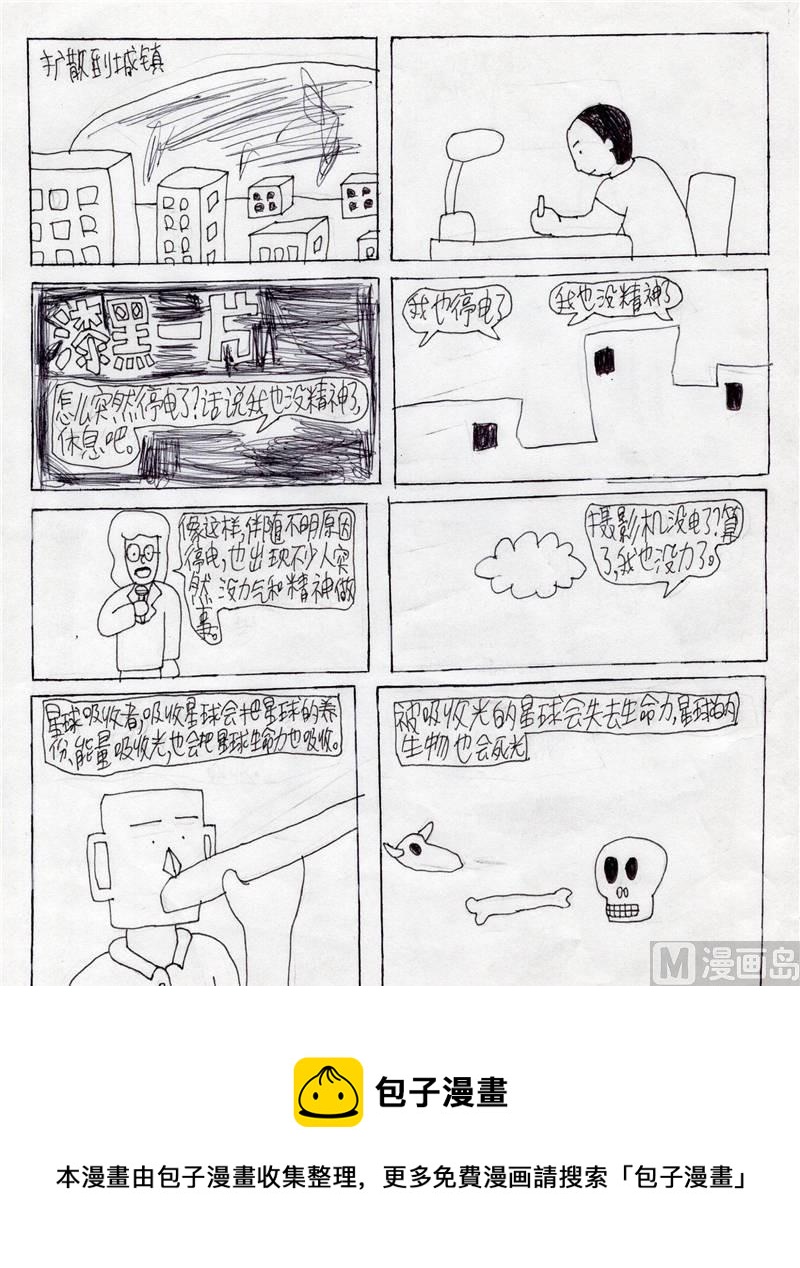 扩散到城镇
漆黑一片
怎么突然停电了?话说我也没精神了,
休息吧。
我也停电了
我也没精神了
像这样,伴随不明原因
停电,也出现不少人突
然没力气和精神做
事。
摄影机没电了?算
了,我也没力了。
星球吸收者,吸收星球会把星球的养
份、能量吸收光,也会把星球生命力也吸收。
被吸收光的星球会失去生命力,星球的
生物也会死光
M 漫画岛
包子漫畫
本漫畫由包子漫畫收集整理，更多免費漫画請搜索「包子漫畫」